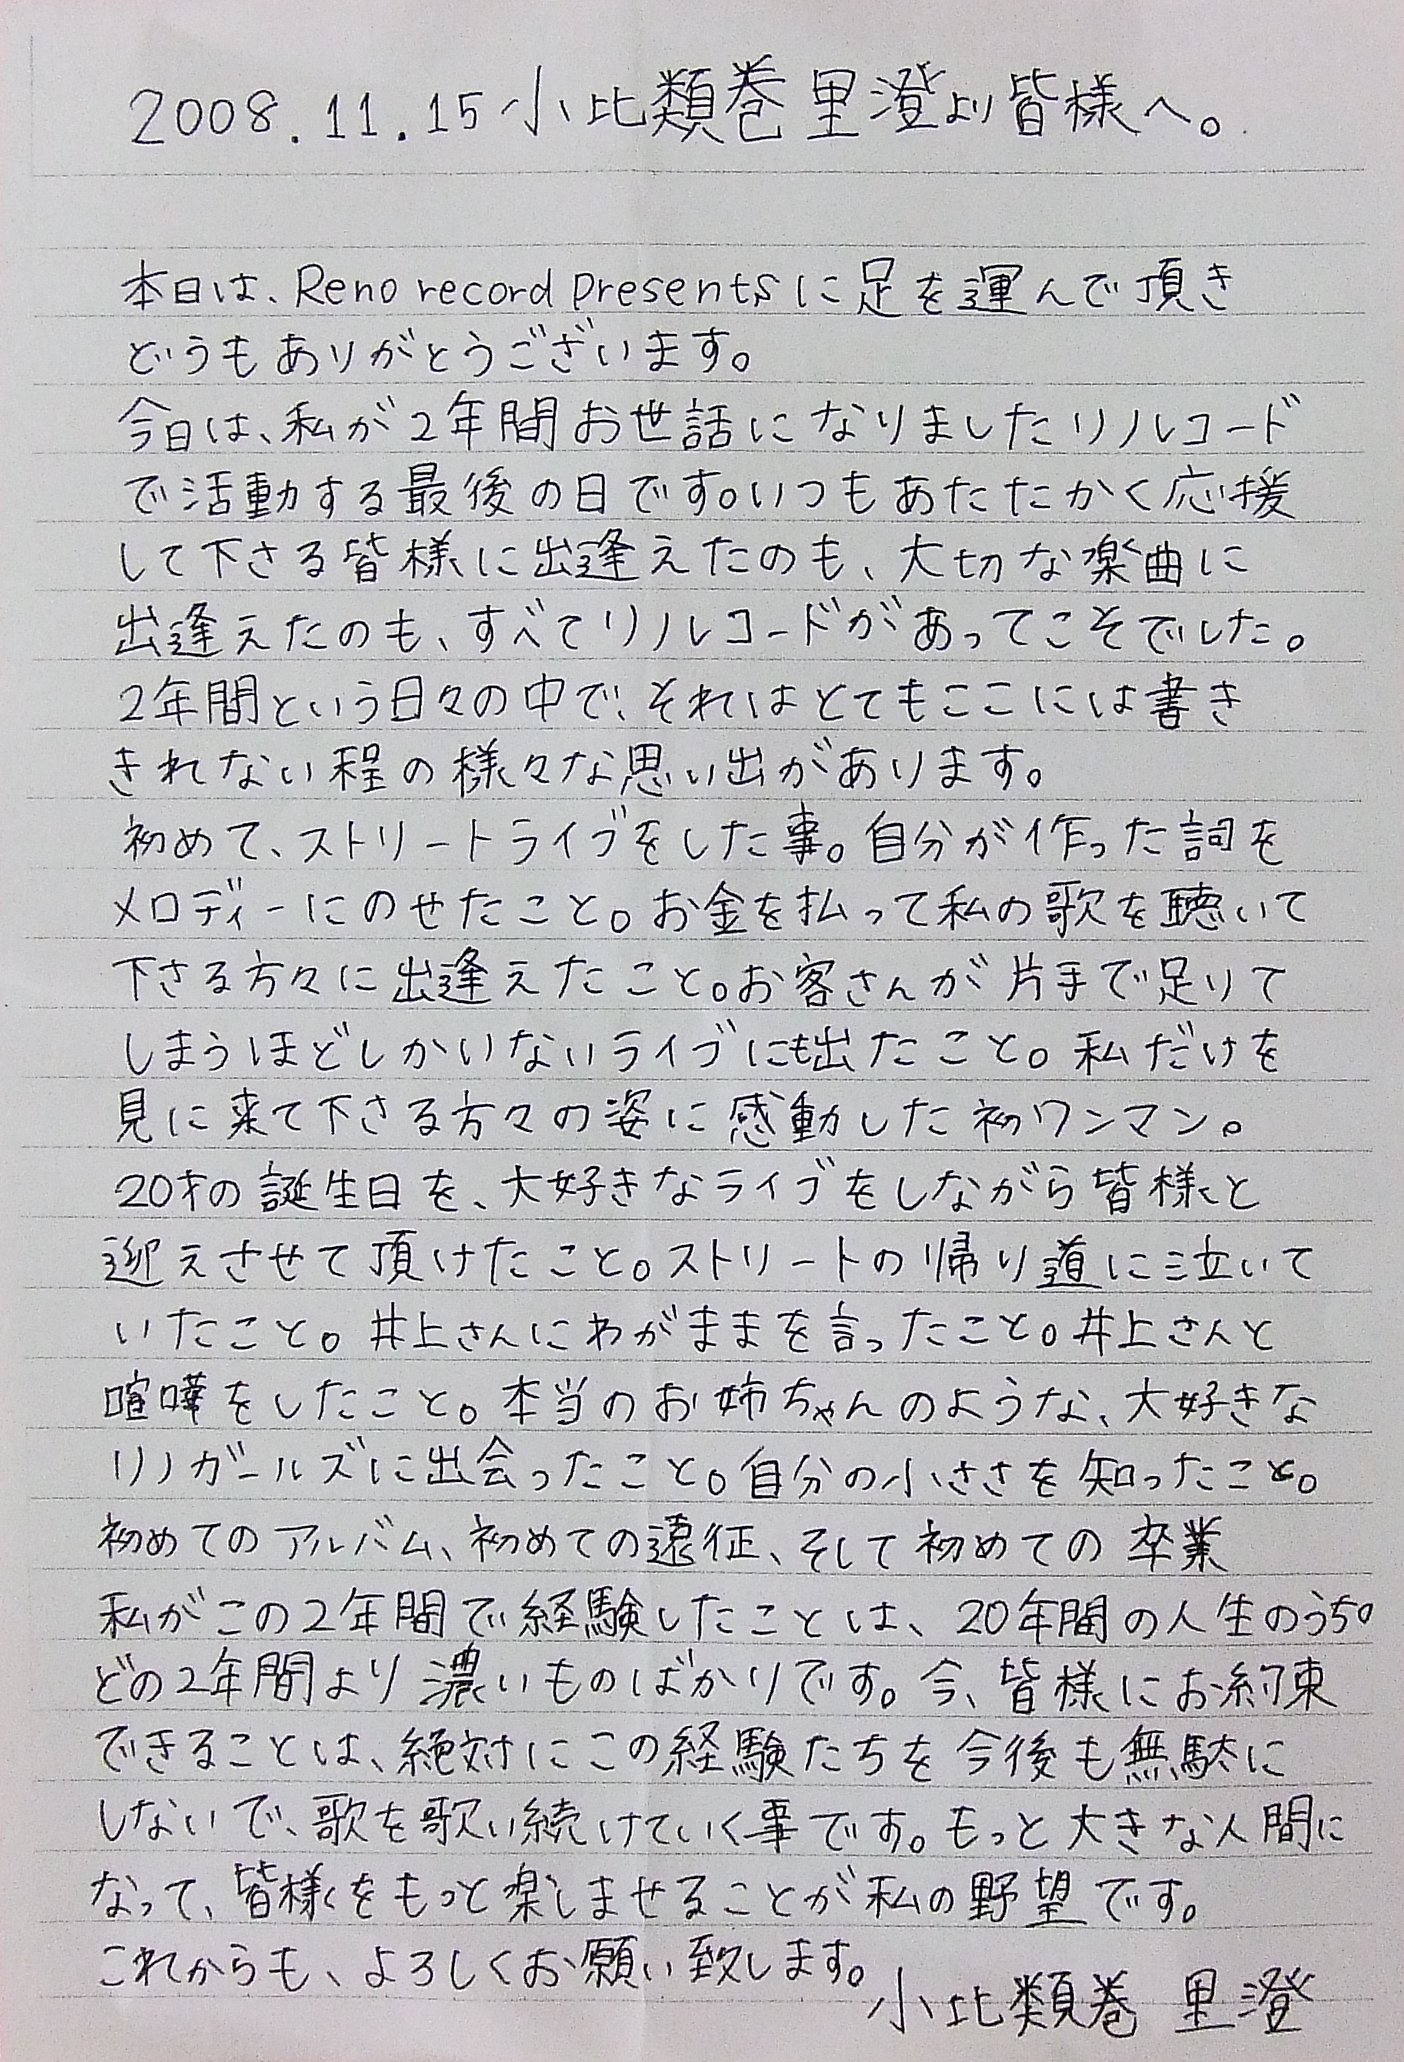 2008.11.15 小比類巻里澄より皆様へ。
本日は、Reno record presentsに足を運んで頂き
どうもありがとうございます。
今日は、私が2年間お世話になりましたリノレコード
で活動する最後の日です。いつもあたたかく応援
して下さる皆様に出逢えたのも、大切な楽曲に
出逢えたのも、すべてリノレコードがあってこそでした。
2年間という日々の中で、それはとてもここには書き
きれない程の様々な思い出があります。
初めて、ストリートライブをした事。自分が作った詞を
メロディーにのせたこと。お金を払って私の歌を聴いて
下さる方々に出逢えたこと。お客さんが片手で足りて
しまうほどしかいないライブにも出たこと。私だけを
見に来て下さる方々の姿に感動した初ワンマン。
20才の誕生日を、大好きなライブをしながら皆様と
迎えさせて頂けたこと。ストリートの帰り道に泣いて
いたこと。井上さんにわがままを言ったこと。井上さんと
喧嘩をしたこと。本当のお姉ちゃんのような、大好きな
リノガールズに出会ったこと。自分の小ささを知ったこと。
初めてのアルバム、初めての遠征、そして初めての卒業
私がこの2年間で経験したことは、20年間の人生のうちの
どの2年間より濃いものばかりです。今、皆様にお約束
できることは、絶対にこの経験たちを今後も無駄に
しないで、歌を歌い続けていく事です。もっと大きな人間に
なって、皆様をもっと楽しませることが私の野望です。
これからも、よろしくお願い致します。
小比類巻 里澄